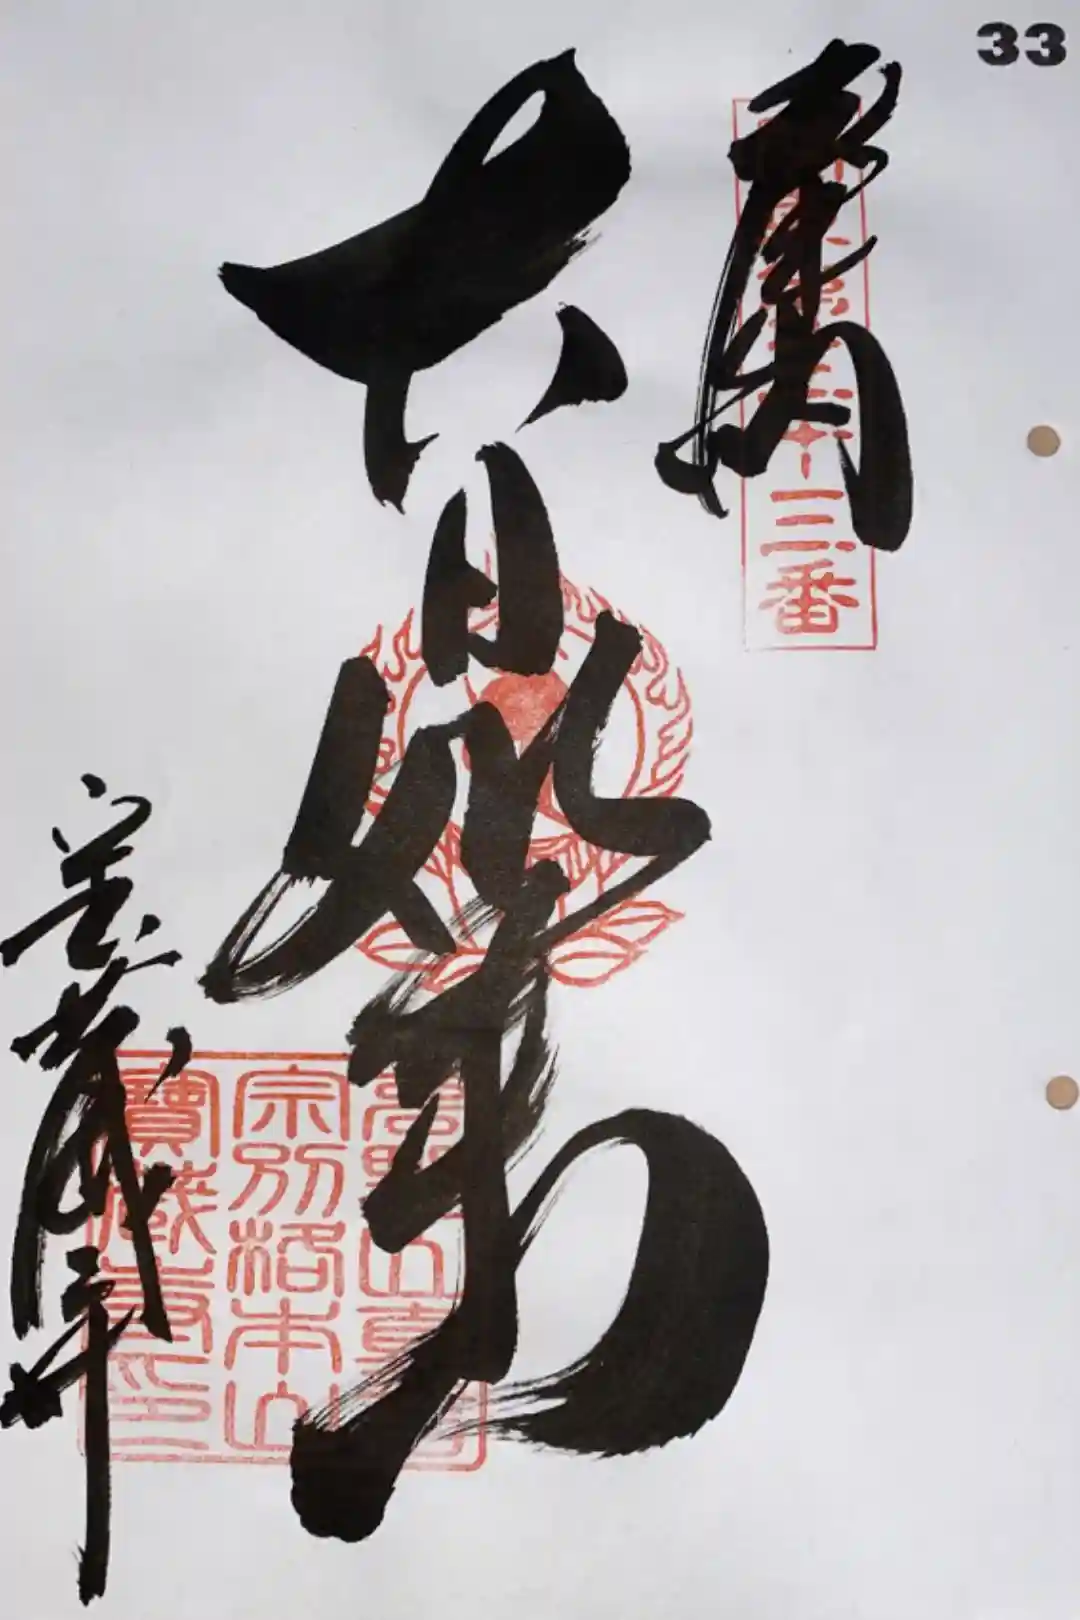 33
奉拝
三十三番
大日如来
宝蔵寺
高野山真言
宗別格本山
寶蔵寺印